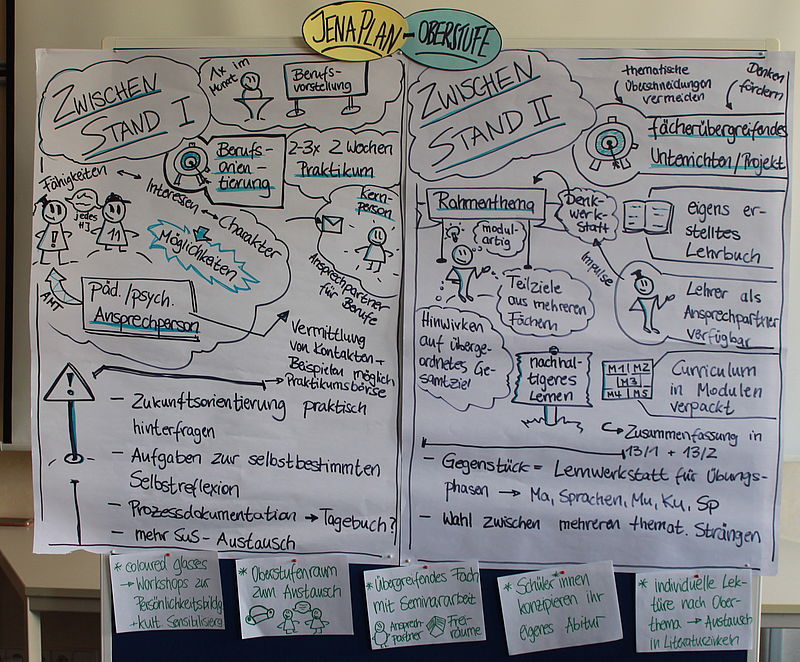 JENAPLAN-OBERSTUFE
ZWISCHEN
STAND I
1x im
Monat
Berufs-
vorstellung
Berufs-
orien-
tierung
2-3x 2 Wochen
Praktikum
Fähigkeiten
Interessen
Charakter
Möglichkeiten
jedes
HJ
!
11
Kern-
person
Ansprechpartner
für Berufe
AMT
Päd./psych.
Ansprechperson
Vermittlung
von Kontakten +
Beispielen möglich
→ Praktikumsbörse
!
- Zukunftsorientierung praktisch
hinterfragen
- Aufgaben zur selbstbestimmten
Selbstreflexion
- Prozessdokumentation → Tagebuch?
- mehr SuS-Austausch
ZWISCHEN
STAND II
thematische
Überschneidungen
vermeiden
Denken
fördern
fächerübergreifendes
Unterrichten/Projekt
Rahmenthema
modul-
artig
Denk-
werk-
statt
eigens er-
stelltes
Lehrbuch
Teilziele
aus mehreren
Fächern
Impulse
Lehrer als
Ansprechpartner
verfügbar
Hinwirken
auf überge-
ordnetes Ge-
samtziel
nachhal-
tigeres
Lernen
M1 M2
M3
M4 M5
Curriculum
in Modulen
verpackt
→ Zusammenfassung in
13/1 + 13/2
- Gegenstück = Lernwerkstatt für Übungs-
phasen → Ma, Sprachen, Mu, Ku, Sp
- Wahl zwischen mehreren themat. Strängen
* coloured glasses
→ Workshops zur
Persönlichkeitsbildg
+ kult. Sensibilisierg
* Oberstufenraum
zum Austausch
* übergreifendes Fach
mit Seminararbeit
Ansprech-
partner
Frei-
räume
* Schüler*innen
konzipieren ihr
eigenes Abitur
* individuelle Lek-
türe nach Ober-
thema → Austausch
in Literaturzirkeln